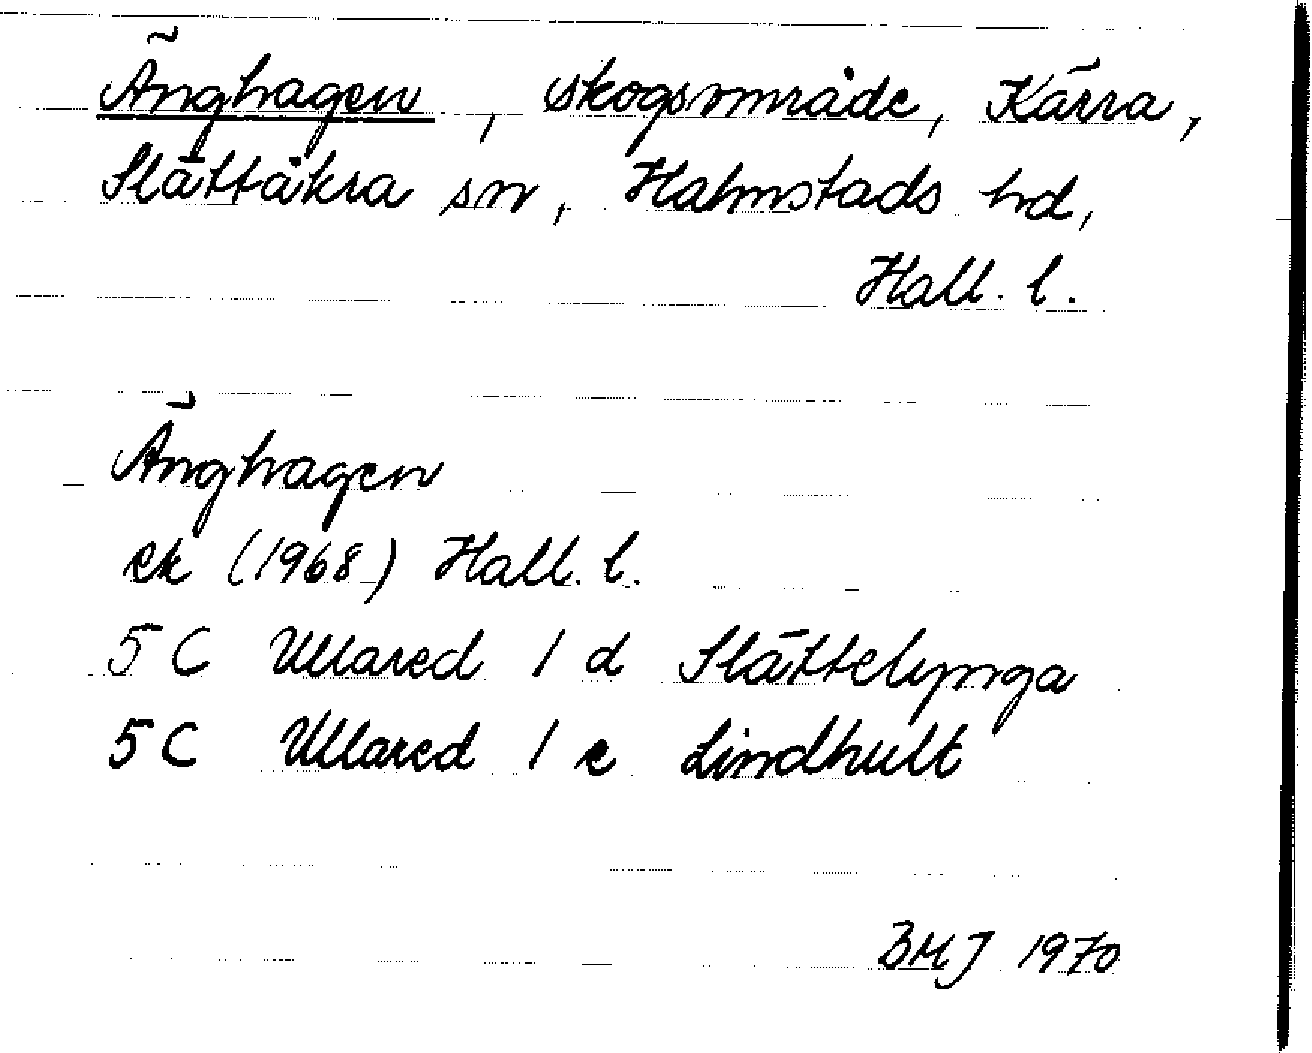 Änghagen, skogsområde, Kärra,
Slättåkra sn, Halmstads hd,
Hall. l.
Änghagen
ek (1968) Hall. l.
5C Ullared 1 d Slättelynga
5C Ullared 1 e Lindhult
BMJ 1970